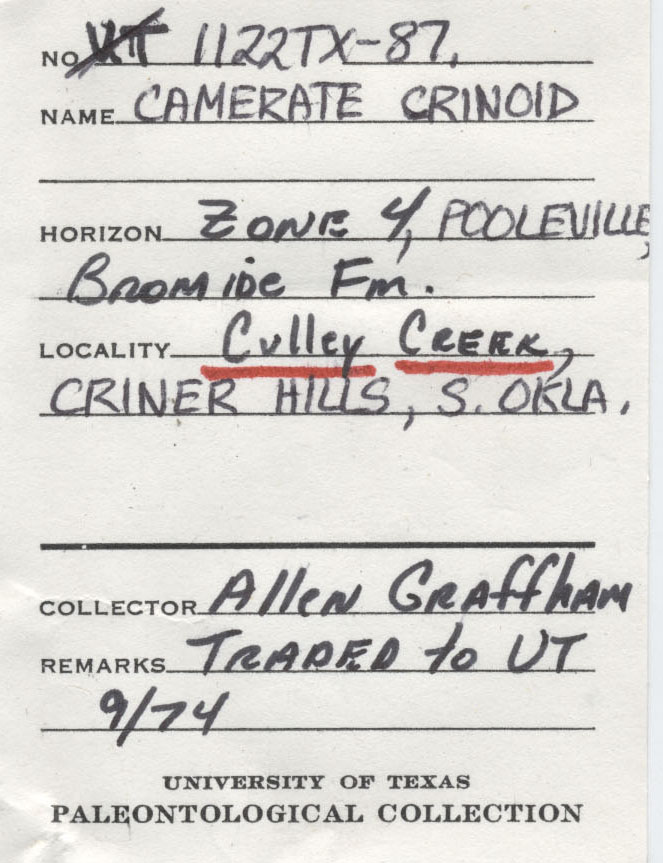 NO. UT 1122TX-87.
NAME CAMERATE CRINOID
HORIZON ZONE 4, POOLEVILLE,
Bromide Fm.
LOCALITY Culley CREEK,
CRINER HILLS, S. OKLA.
COLLECTOR Allen Graffham
REMARKS TRADED to UT
9/74
UNIVERSITY OF TEXAS
PALEONTOLOGICAL COLLECTION